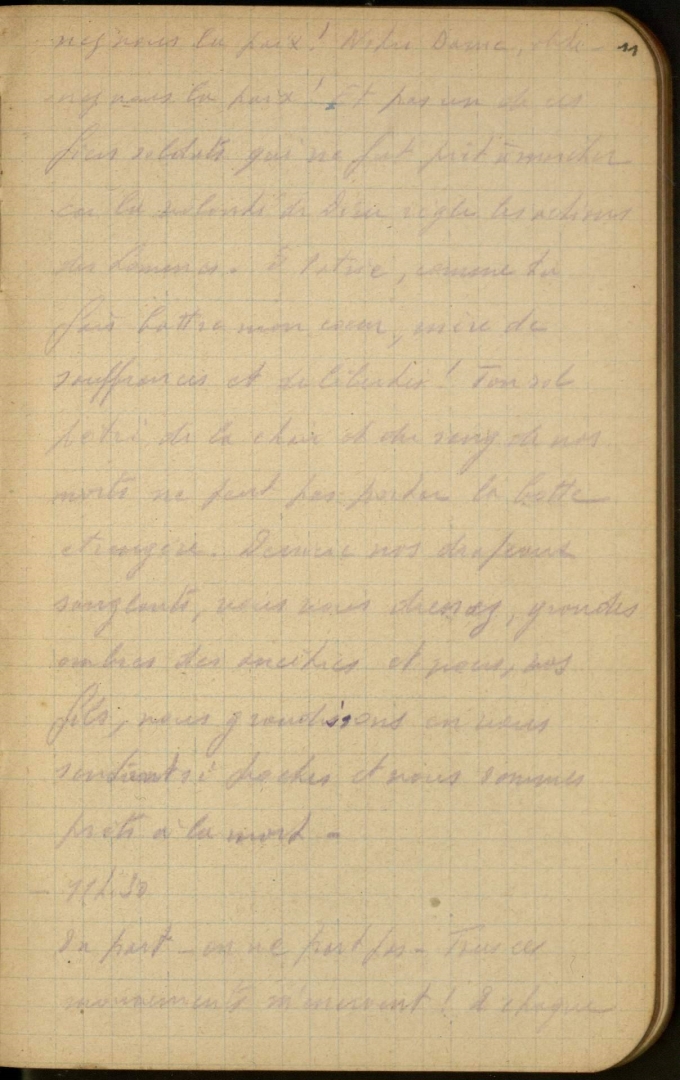 11
nez nous la paix ! Notre Dame, obte-
nez nous la paix ! Et pas un de ces
fiers soldats qui ne fut prêt à marcher
car la volonté de Dieu règle les actions
des hommes. O Patrie, comme tu
fais battre mon cœur, mère de
souffrances et de libertés ! Ton sol
pétri de la chair et du sang de nos
morts ne peut pas porter la botte
étrangère. Derrière nos drapeaux
sanglants, vous vous dressez, grandes
ombres des ancêtres et nous, vos
fils, nous grandissons en vous
sentant si proches et nous sommes
prêts à la mort -
- 11h.30
On part - on ne part pas - Tous ces
mouvements m'énervent ! A chaque